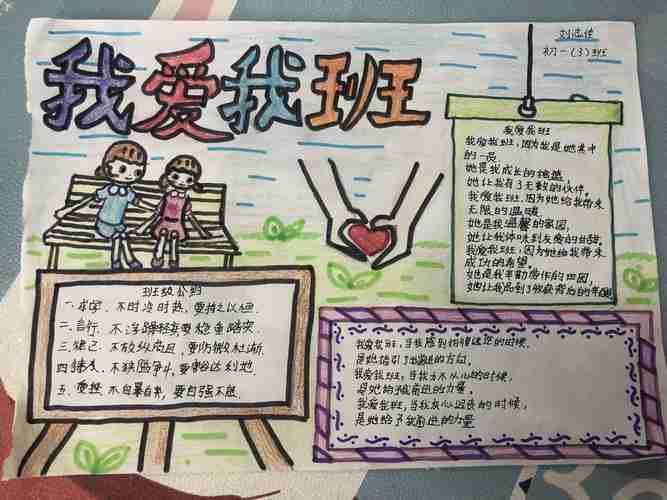 我爱我班
刘
初一(3)班
我爱我班
我爱我班,因为我是她其中
的一员。
她是我成长的摇篮
她让我有了无数的伙伴。
我爱我班,因为她给我带来
无限的温暖,
她是我温馨的家园,
她让我体味到友爱的甘甜。
我爱我班,因为她给我带来
成功的希望。
她是我辛勤劳作的田园,
她让我品到了收获背后的辛酸
班级公约
一、求学、不时冷时热,要持之以恒.
二、言行、不浮躁轻率要稳重踏实.
三、律己、不放纵苟且,要防微杜渐.
四、不狭隘争斗,要豁达利他.
五、不自暴自弃,要自强不息.
我爱我班,当我感到彷徨迷茫的时候.
是她指引了我前进的方向.
我爱我班,当我力不从心的时候,
是她给了我前进的力量.
我爱我班,当我灰心沮丧的时候,
是她给了我前进的力量